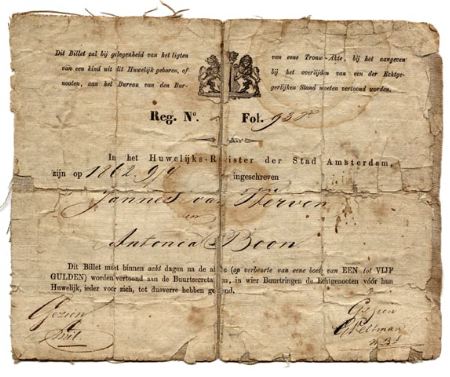 Dit Billet zal bij gelegenheid van het ligten van eene Trouw-Akte, bij het aangeven
van een kind uit dit Huwelijk geboren, of bij het overlijden van een der Echtge-
nooten, aan het Bureau van den Bur- gerlijken Stand moeten vertoond worden.
Reg. No. Fol. 95
In het Huwelijks-Register der Stad Amsterdam,
zijn op 1862 9/4 ingeschreven
Jannes van Werven
en
Antonia Boon
Dit Billet moet binnen acht dagen na de (op verbeurte van eene boete van EEN tot VIJF
GULDEN) worden vertoond aan de Buurtsecretarissen, in wier Buurtringen de Echtgenooten vóór hun
Huwelijk, ieder voor zich, tot dusverre hebben gewoond.
Gezien Gezien
Veltman